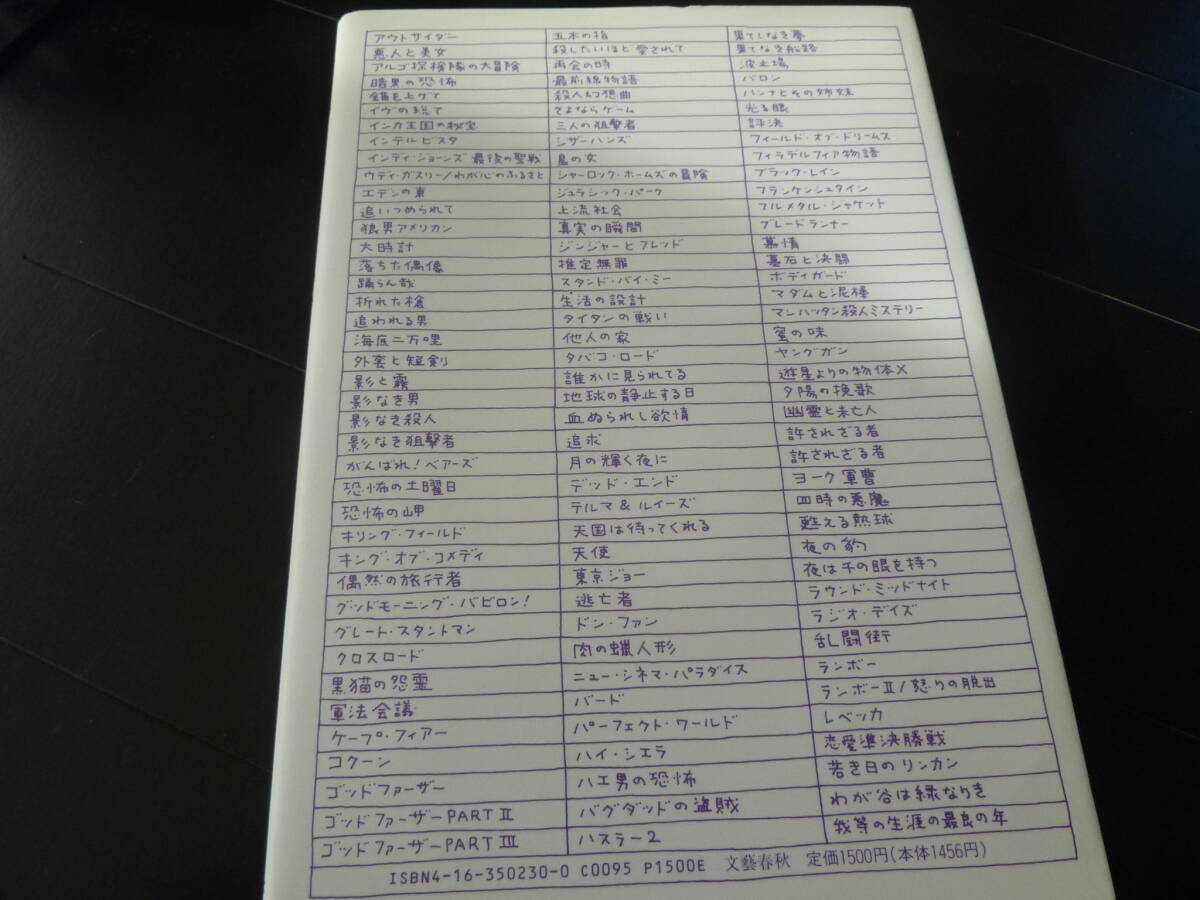 アウトサイダー
悪人と美女
アルゴ探検隊の大冒険
暗黒の恐怖
錨を上げて
イヴの総て
インカ王国の秘宝
インテルビスタ
インディ・ジョーンズ 最後の聖戦
ウディ・ガスリー/わが心のふるさと
エデンの東
追いつめられて
狼男アメリカン
大時計
落ちた偶像
踊らん哉
折れた槍
追われる男
海底二万哩
外套と短剣
影と霧
影なき男
影なき殺人
影なき狙撃者
がんばれ!ベアーズ
恐怖の土曜日
恐怖の岬
キリング・フィールド
キング・オブ・コメディ
偶然の旅行者
グッドモーニング・バビロン!
グレート・スタントマン
クロスロード
黒猫の怨霊
軍法会議
ケープ・フィアー
コクーン
ゴッドファーザー
ゴッドファーザーPART II
ゴッドファーザーPART III
五本の指
殺したいほど愛されて
再会の時
最前線物語
殺人幻想曲
さよならゲーム
三人の狙撃者
シザーハンズ
島の女
シャーロック・ホームズの冒険
ジュラシック・パーク
上流社会
真実の瞬間
ジンジャーとフレッド
推定無罪
スタンド・バイ・ミー
生活の設計
タイタンの戦い
他人の家
タバコ・ロード
誰かに見られてる
地球の静止する日
血ぬられし欲情
追求
月の輝く夜に
デッド・エンド
テルマ&ルイーズ
天国は待ってくれる
天使
東京ジョー
逃亡者
ドン・ファン
肉の蝋人形
ニュー・シネマ・パラダイス
バード
パーフェクト・ワールド
ハイ・シエラ
ハエ男の恐怖
バグダッドの盗賊
ハスラー2
果てしなき夢
果てなき船路
波止場
バロン
ハンナとその姉妹
光る眼
評決
フィールド・オブ・ドリームス
フィラデルフィア物語
ブラック・レイン
フランケンシュタイン
フルメタル・ジャケット
ブレードランナー
慕情
墓石と決闘
ボディガード
マダムと泥棒
マンハッタン殺人ミステリー
蜜の味
ヤングガン
遊星よりの物体X
夕陽の挽歌
幽霊と未亡人
許されざる者
許されざる者
ヨーク軍曹
四時の悪魔
甦える熱球
夜の豹
夜は千の眼を持つ
ラウンド・ミッドナイト
ラジオ・デイズ
乱闘街
ランボー
ランボーII/怒りの脱出
レベッカ
恋愛準決勝戦
若き日のリンカン
わが谷は緑なりき
我等の生涯の最良の年
ISBN4-16-350230-0 C0095 P1500E 文藝春秋 定価1500円(本体1456円)